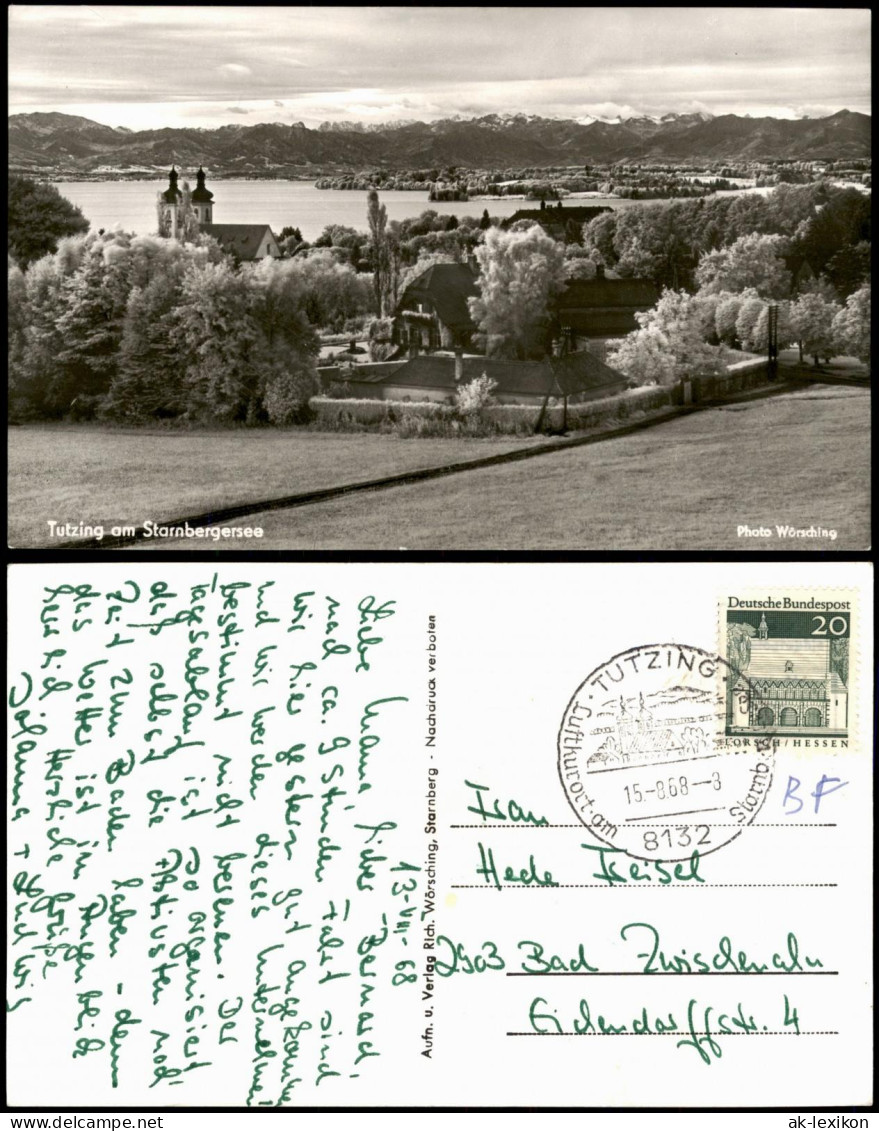 Tutzing am Starnbergersee
Photo Wörsching
13-VIII-68
Liebe Mama, lieber Bernard!
nach ca. 9 Stunden Fahrt sind
wir hier gestern gut angekommen
und wir werden dieses Unternehmen
bestimmt nicht bereuen. Der
Tagesablauf ist so organisiert
daß selbst die Aktivsten noch
Zeit zum Baden haben - denn
das Wetter ist im Augenblick
herrlich. Herzliche Grüße
Johanna + Ludwig
Aufn. u. Verlag Rich. Wörsching, Starnberg - Nachdruck verboten
Deutsche Bundespost
20
LORSCH/HESSEN
TUTZING
Luftkurort am Starnb. See
15.-8.68-8
8132
BF
Frau
Hede Feisel
2903 Bad Zwischenahn
Eichendorffstr. 4
ak-lexikon